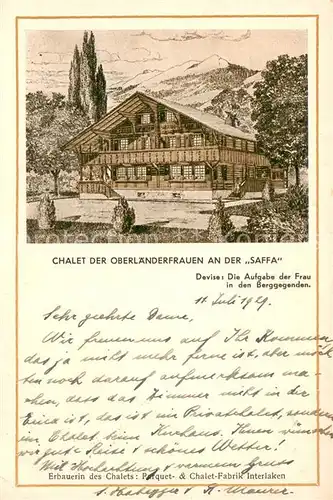 CHALET DER OBERLÄNDERFRAUEN AN DER „SAFFA"
Devise: Die Aufgabe der Frau
in den Berggegenden.
11. Juli 1929.
Sehr geehrte Dame,
Wir freuen uns auf Ihr Kommen
das ja nicht mehr ferne ist, aber möch-
ten noch darauf aufmerksam ma-
chen, dass das Zimmer nicht in der
Erica ist, das ist ein Privatchalet, sondern
ein Chalet beim Kurhaus. Ihnen wünschen
wir gute Reise & schönes Wetter!
Mit Hochachtung & warmem Gruss
Erbauerin des Chalets: Parquet- & Chalet-Fabrik Interlaken